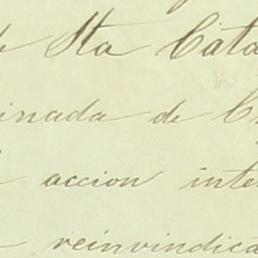 de Sta Cata
inada de C
accion inte
reinvindica